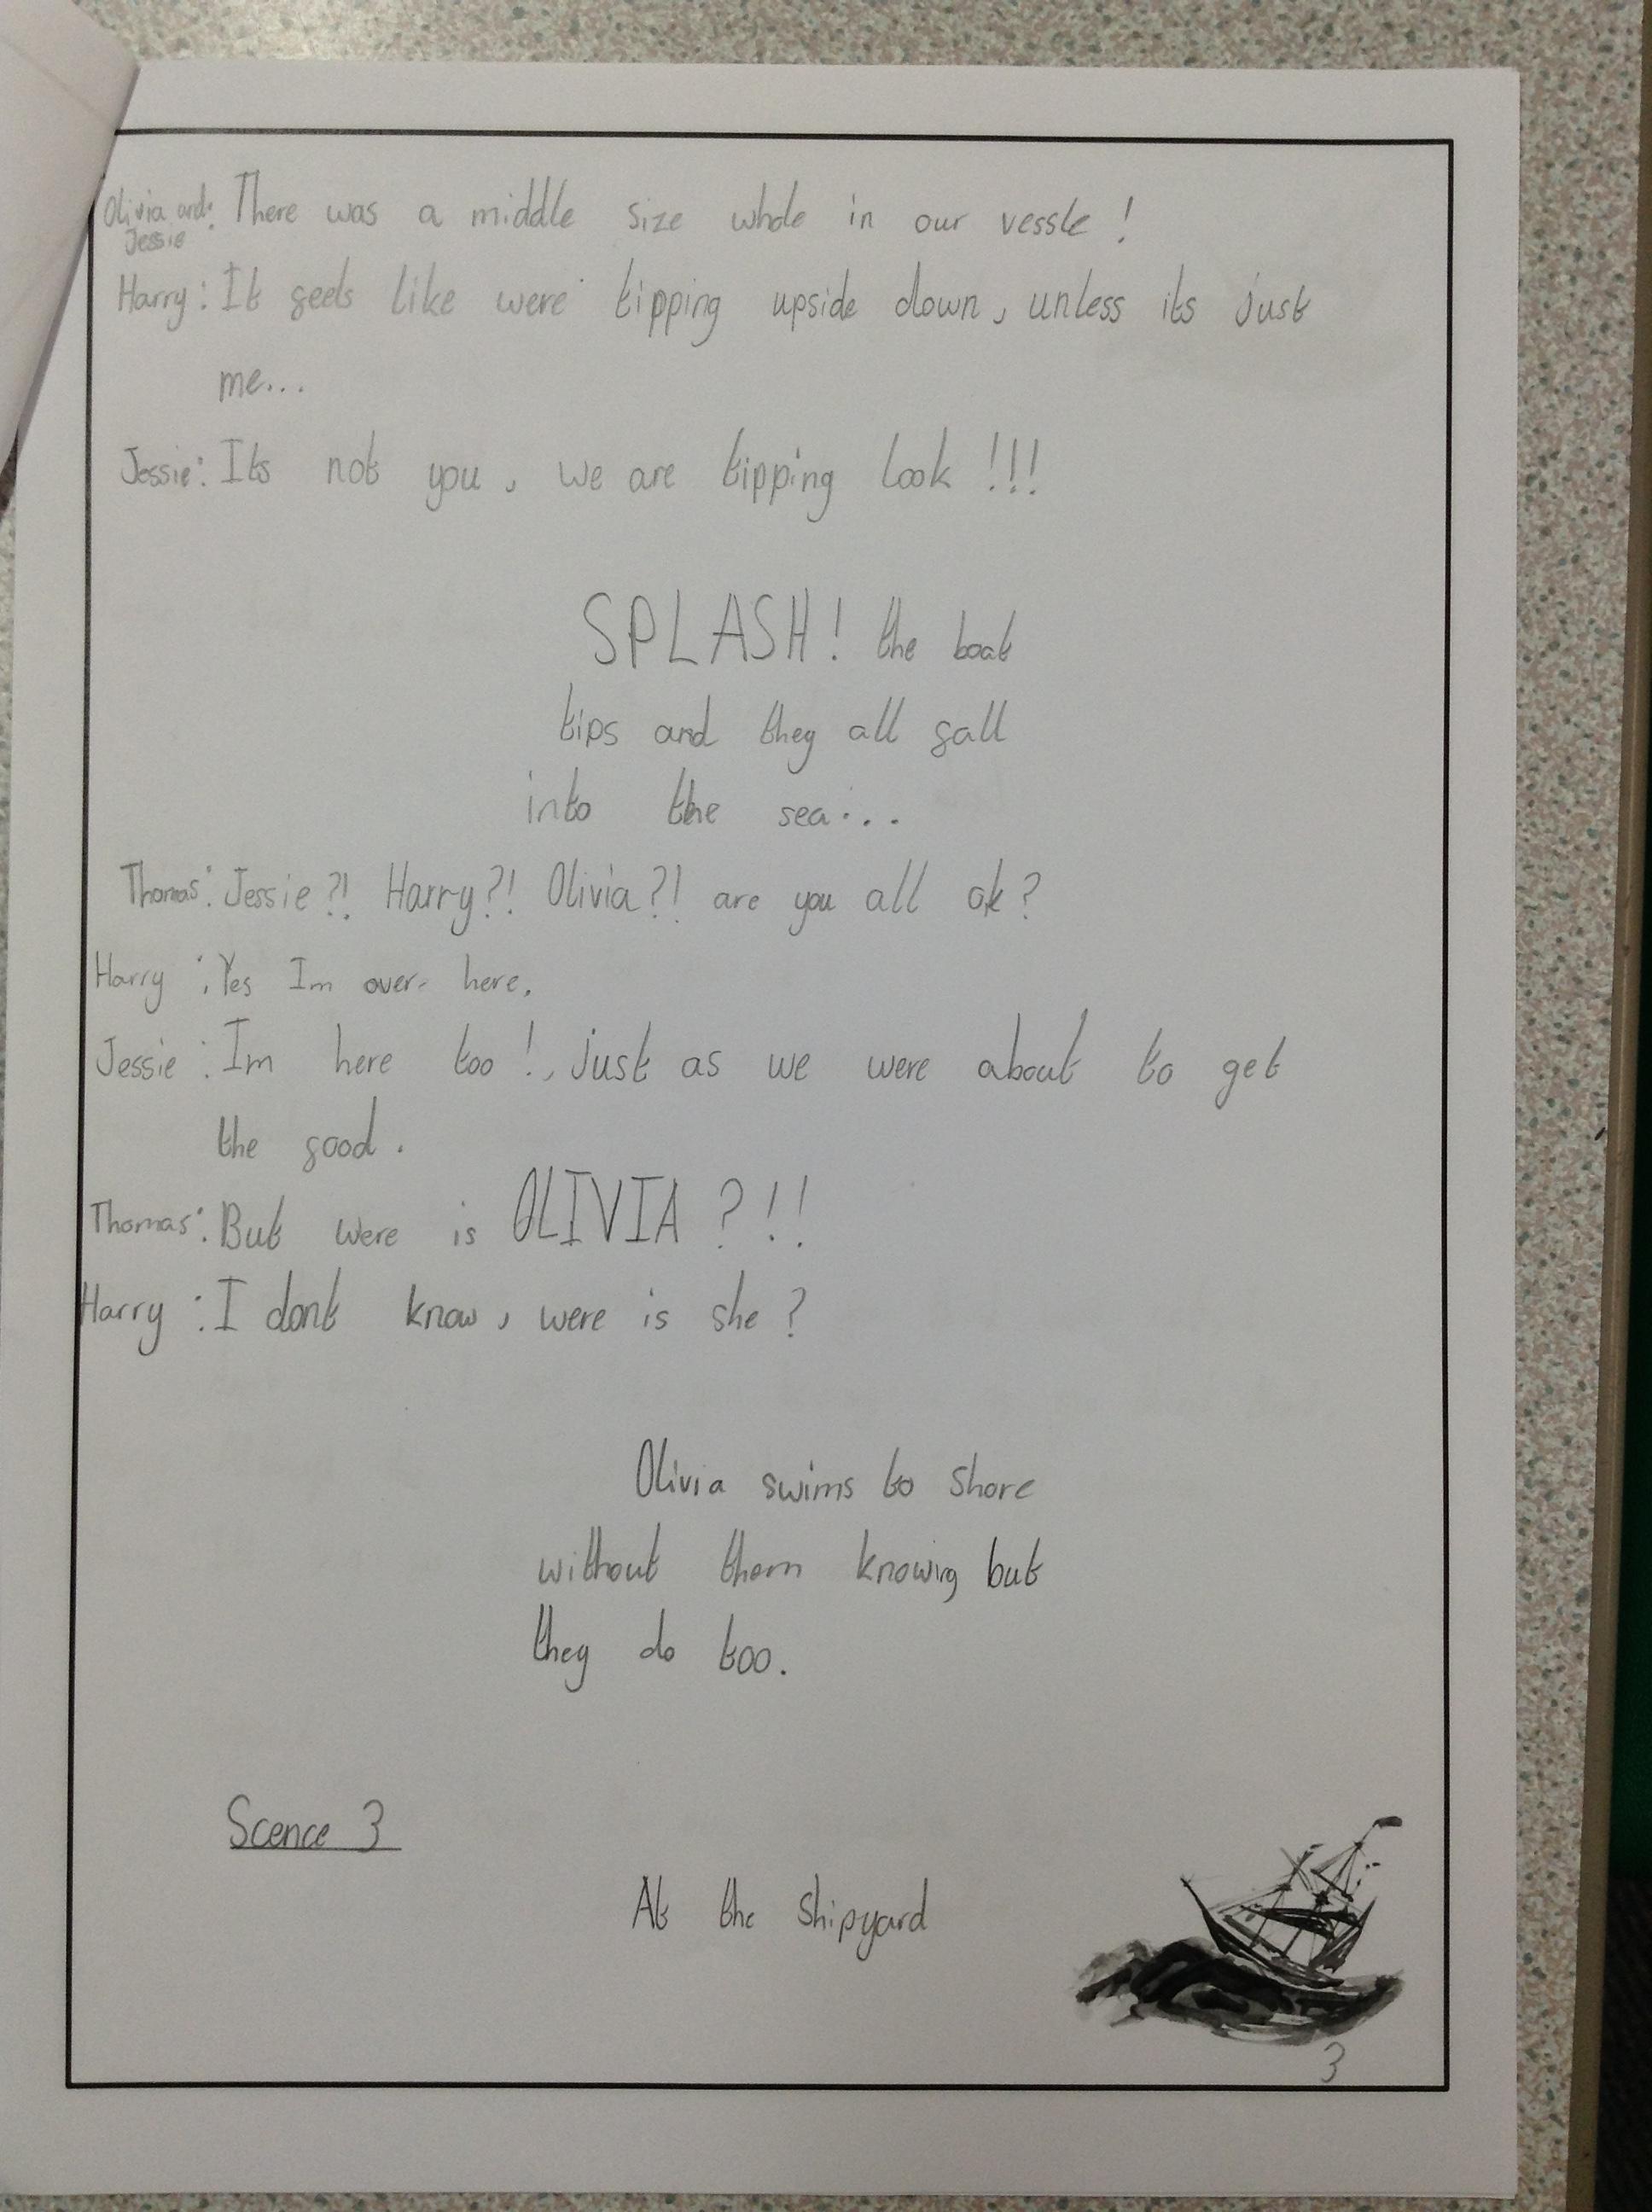 Olivia and: There was a middle size whole in our vessle !
Jessie
Harry: It feels like were tipping upside down, unless its just
me...
Jessie: Its not you, we are tipping look !!!
SPLASH! the boat
tips and they all fall
into the sea...
Thomas: Jessie?! Harry?! Olivia?! are you all ok?
Harry: Yes Im over here.
Jessie: Im here too!, just as we were about to get
the food.
Thomas: But were is OLIVIA?!!
Harry: I dont know, were is she?
Olivia swims to shore
without them knowing but
they do too.
Scence 3
At the shipyard
3